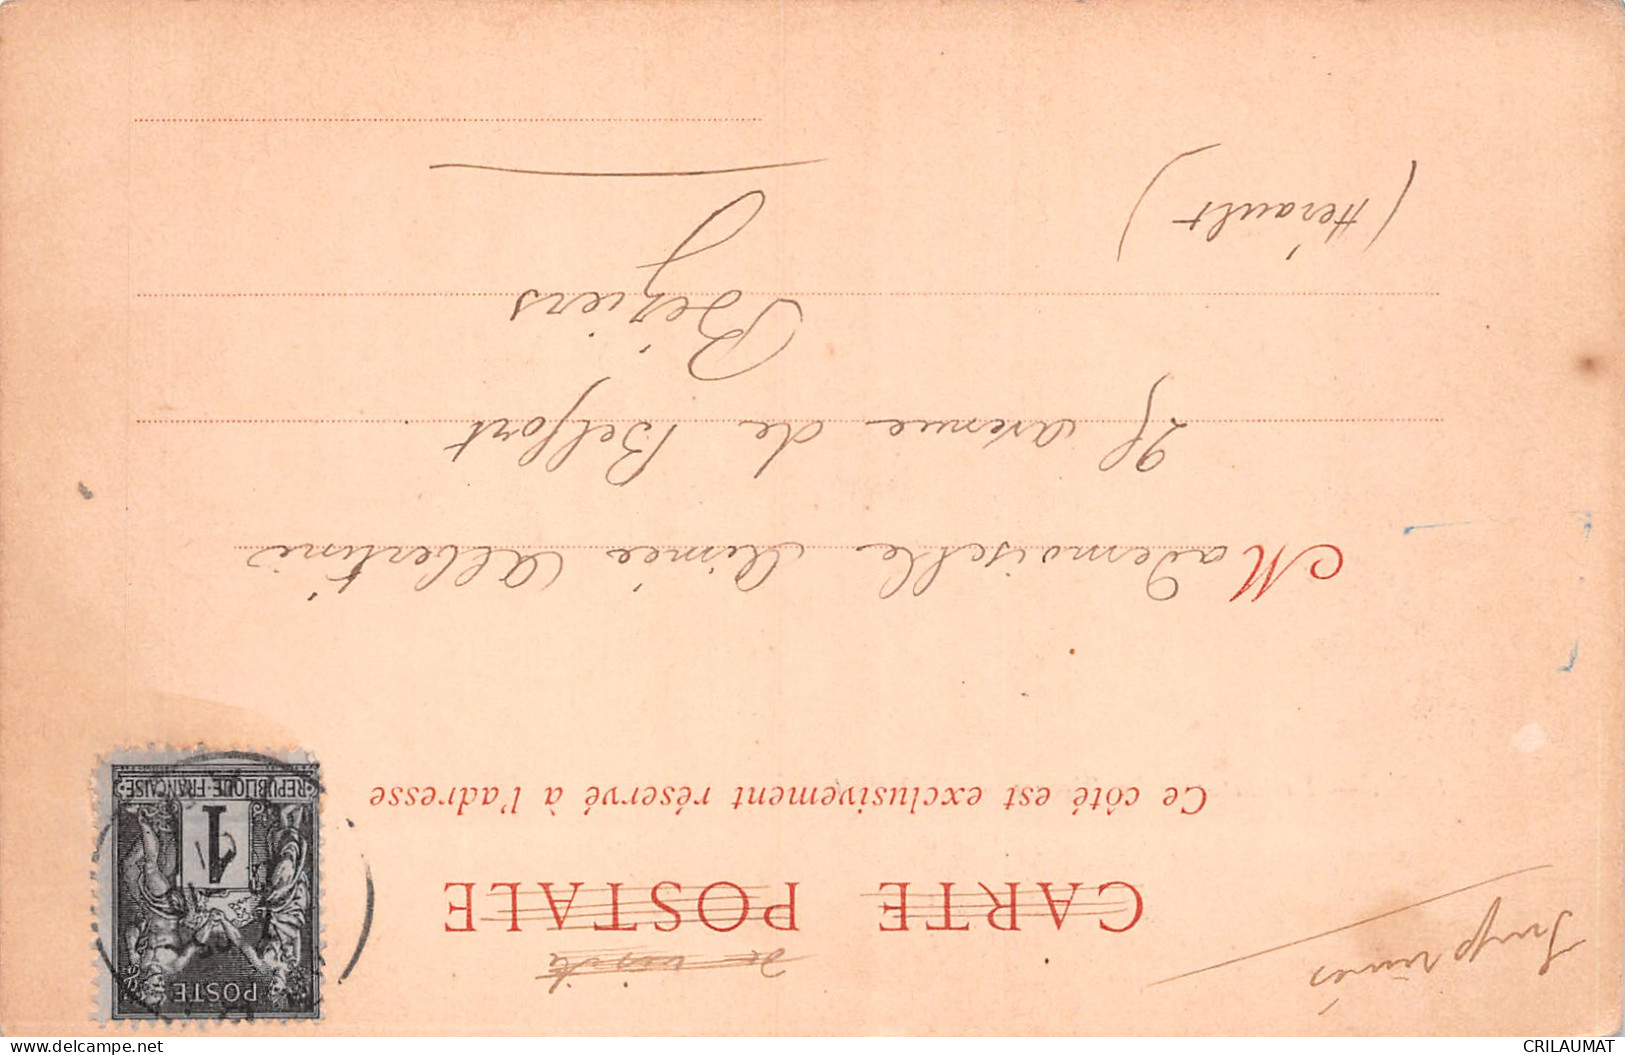 Imprimés
de visite
CARTE POSTALE
Ce côté est exclusivement réservé à l'adresse
Mademoiselle Aimée Albertini
25 avenue de Belfort
Béziers
(Hérault)
POSTE
1
REPUBLIQUE FRANÇAISE
delcampe.net
CRILAUMAT